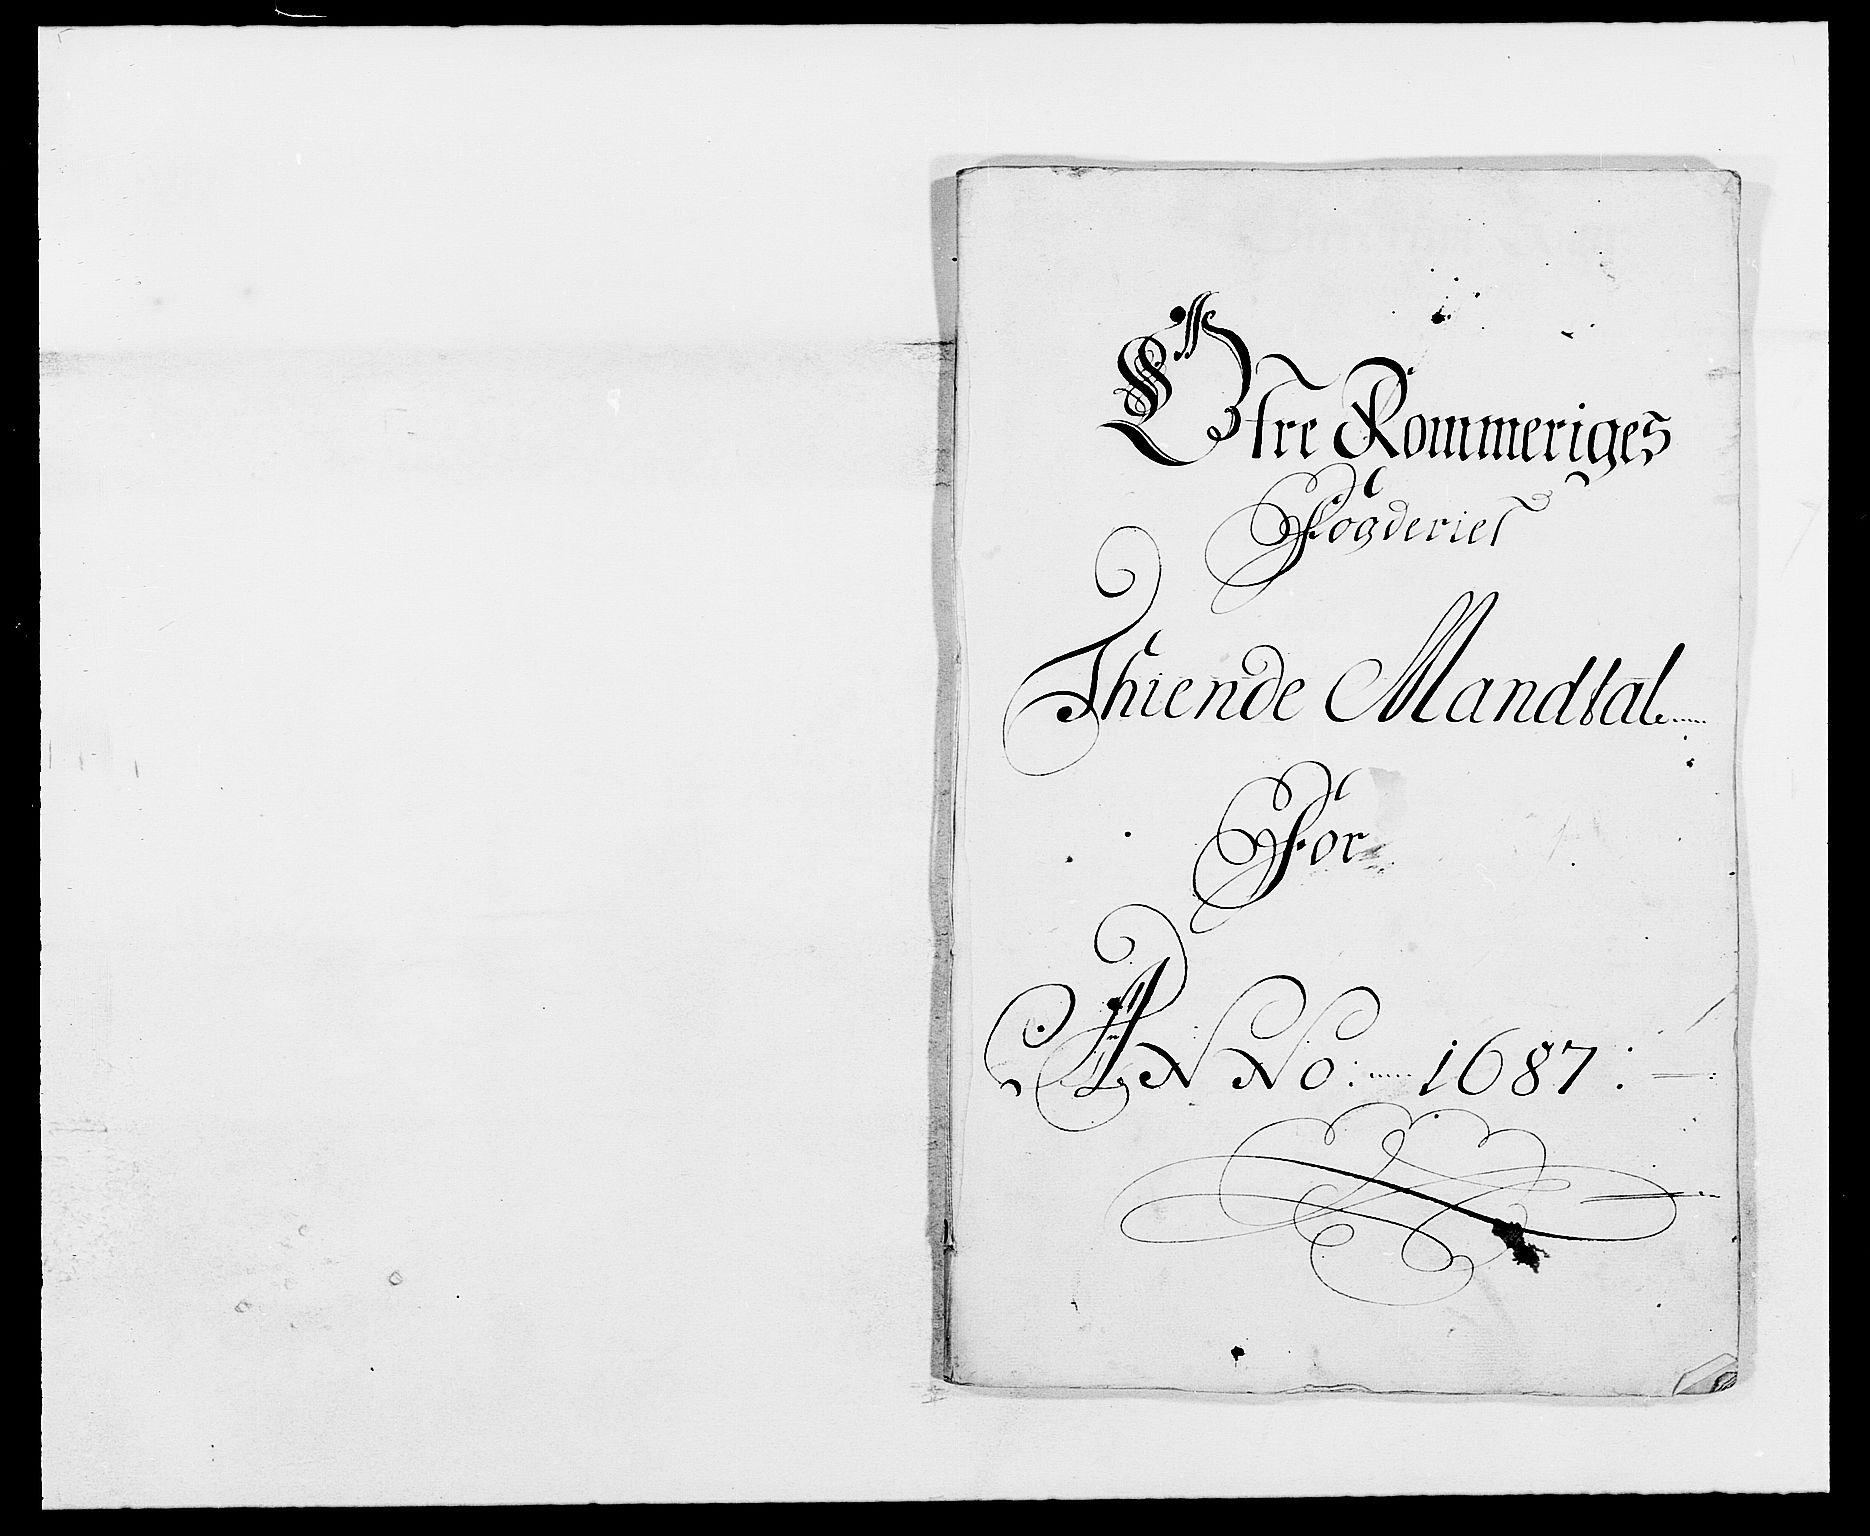 Øfre Rommeriges
Fogderies
Thiende Mandtal
For
ANNo: 1687: